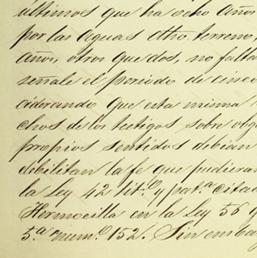 últimos que ha ocho años
por las aguas otro terreno,
años, otros que dos, no falta
señale el periodo de cinco
adorando que esta misma
chos de los testigos, sobre obj
propios sentidos debian
debilitan la fe que pudieran
la ley 42 tit.º y part.ª citad
Hermocilla en la ley 56 g
5.ª num.º 152. Sin embarg